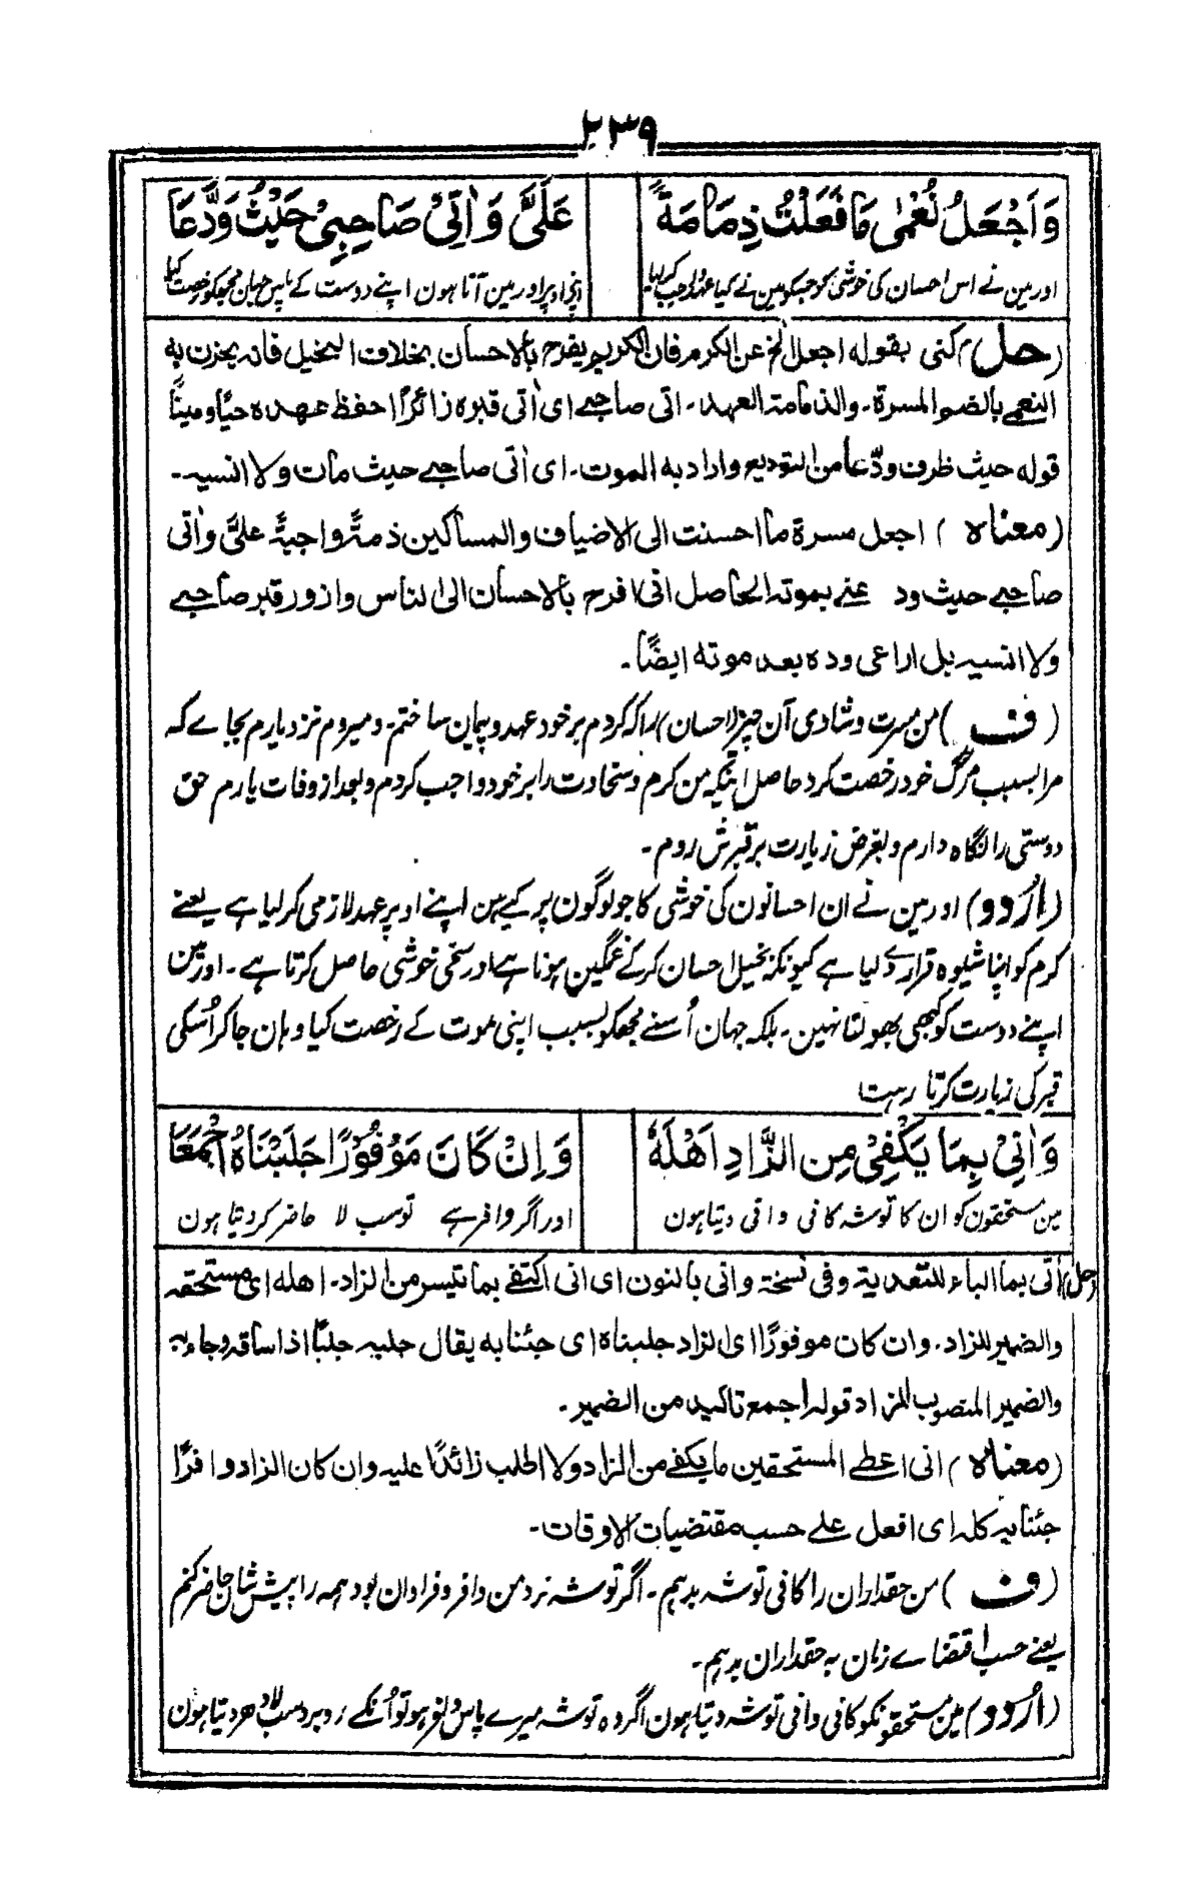 ٢٣٩
وَاَجْعَلُ نُعْمٰى مَا فَعَلْتُ ذِمَامَةً عَلَىَّ وَاٰتِىْ صَاحِبِىْ حَيْثُ وَدَّعَا
اور مین نے اس احسان کی خوشی کو جسکو مین نے کیا عہد واجب کر لیا اپنے اوپر اور مین آتا ہون اپنے دوست کے پاس جہان مجھکو رخصت کیا
(حل) كنى بقوله اجعل الخ عن الكرم فان الكريم يفرح بالاحسان بخلاف البخيل فانه يحزن به
النعمى بالضم المسرة۔ والذمامة العهد۔ اٰتى صاحبے اى اٰتى قبره زائرًا احفظ عهده حيًّا وميتًا
قوله حيث ظرف ودّعا من التوديع واراد به الموت۔ اى اٰتى صاحبے حيث مات ولا انسيه۔
(معناه) اجعل مسرة ما احسنت الى الاضياف والمساكين ذمةً واجبةً علىَّ واٰتى
صاحبے حيث ود عنے بموته الحاصل انى افرح بالاحسان الى الناس وازور قبر صاحبے
ولا انسيه بل اراعى وده بعد موته ايضًا۔
(ف) من مسرت وشادی آن چیز (احسان) را کہ کردم بر خود عہد و پیمان ساختم۔ و میروم نزد یارم بجاے کہ
مرا بسبب مرگ خود رخصت کرد حاصل اینکہ من کرم و سخاوت را بر خود واجب کردم و بعد از وفات یارم حق
دوستی را نگاہ دارم و بغرض زیارت بر قبرش روم۔
(اُردو) اور مین نے ان احسانون کی خوشی کا جو لوگون پر کیے ہین اپنے اوپر عہد لازمی کر لیا ہے یعنے
کرم کو اپنا شیوہ قرار دے لیا ہے کیونکہ بخیل احسان کرکے غمگین ہوتا ہے اور سخی خوشی حاصل کرتا ہے۔ اور مین
اپنے دوست کو کبھی بھولتا نہین۔ بلکہ جہان اُسنے مجھکو بسبب اپنی موت کے رخصت کیا وہان جا کر اُسکی
قبر کی زیارت کرتا رہتا
وَاٰتِىْ بِمَا يَكْفِىْ مِنَ الزَّادِ اَهْلَهٗ وَاِنْ كَانَ مَوْفُوْرًا جَلَبْنَاهُ اَجْمَعَا
مین مستحقون کو ان کا توشہ کافی وافی دیتا ہون اور اگر وافر ہے تو سب لا حاضر کر دیتا ہون
(حل) اٰتى بما الباء للتعدية وفى نسخة وانى بالنون اى انى اكتفے بما تيسر من الزاد۔ اهله اى مستحقه
والضمير للزاد۔ وان كان موفورًا اى الزاد جلبناه اى جئنا به يقال جلبه جلبًا اذا ساقه وجاء به
والضمير المنصوب للزاد قوله اجمع تاكيد من الضمير۔
(معناه) انى اعطے المستحقين ما يكفے من الزاد ولا اطلب زائدًا عليه وان كان الزاد وافرًا
جئنا به كله اى افعل علے حسب مقتضيات الاوقات۔
(ف) من حقداران را کافی توشہ بدہم۔ اگر توشہ نزد من وافر و فراوان بود ہمہ را پیش شان حاضر کنم
یعنے حسب اقتضاے زمان بہ حقداران بدہم۔
(اُردو) مین مستحقونکو کافی وافی توشہ دیتا ہون اگر وہ توشہ میرے پاس وافر ہو تو اُنکے روبرو سب لا دھر دیتا ہون